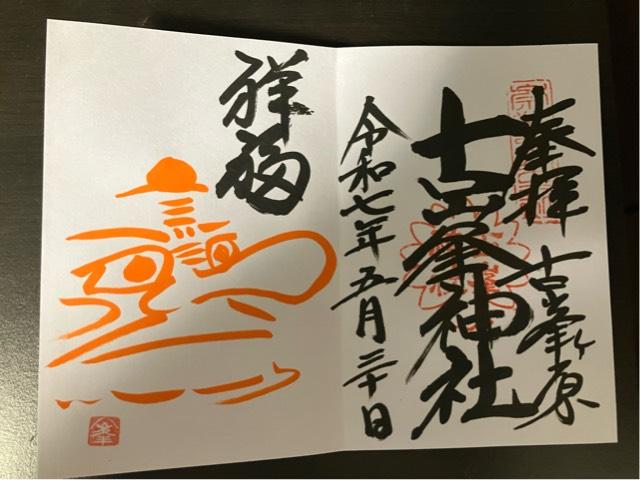 奉拝 古峯ヶ原
古峯神社
令和七年五月三十日
祥福